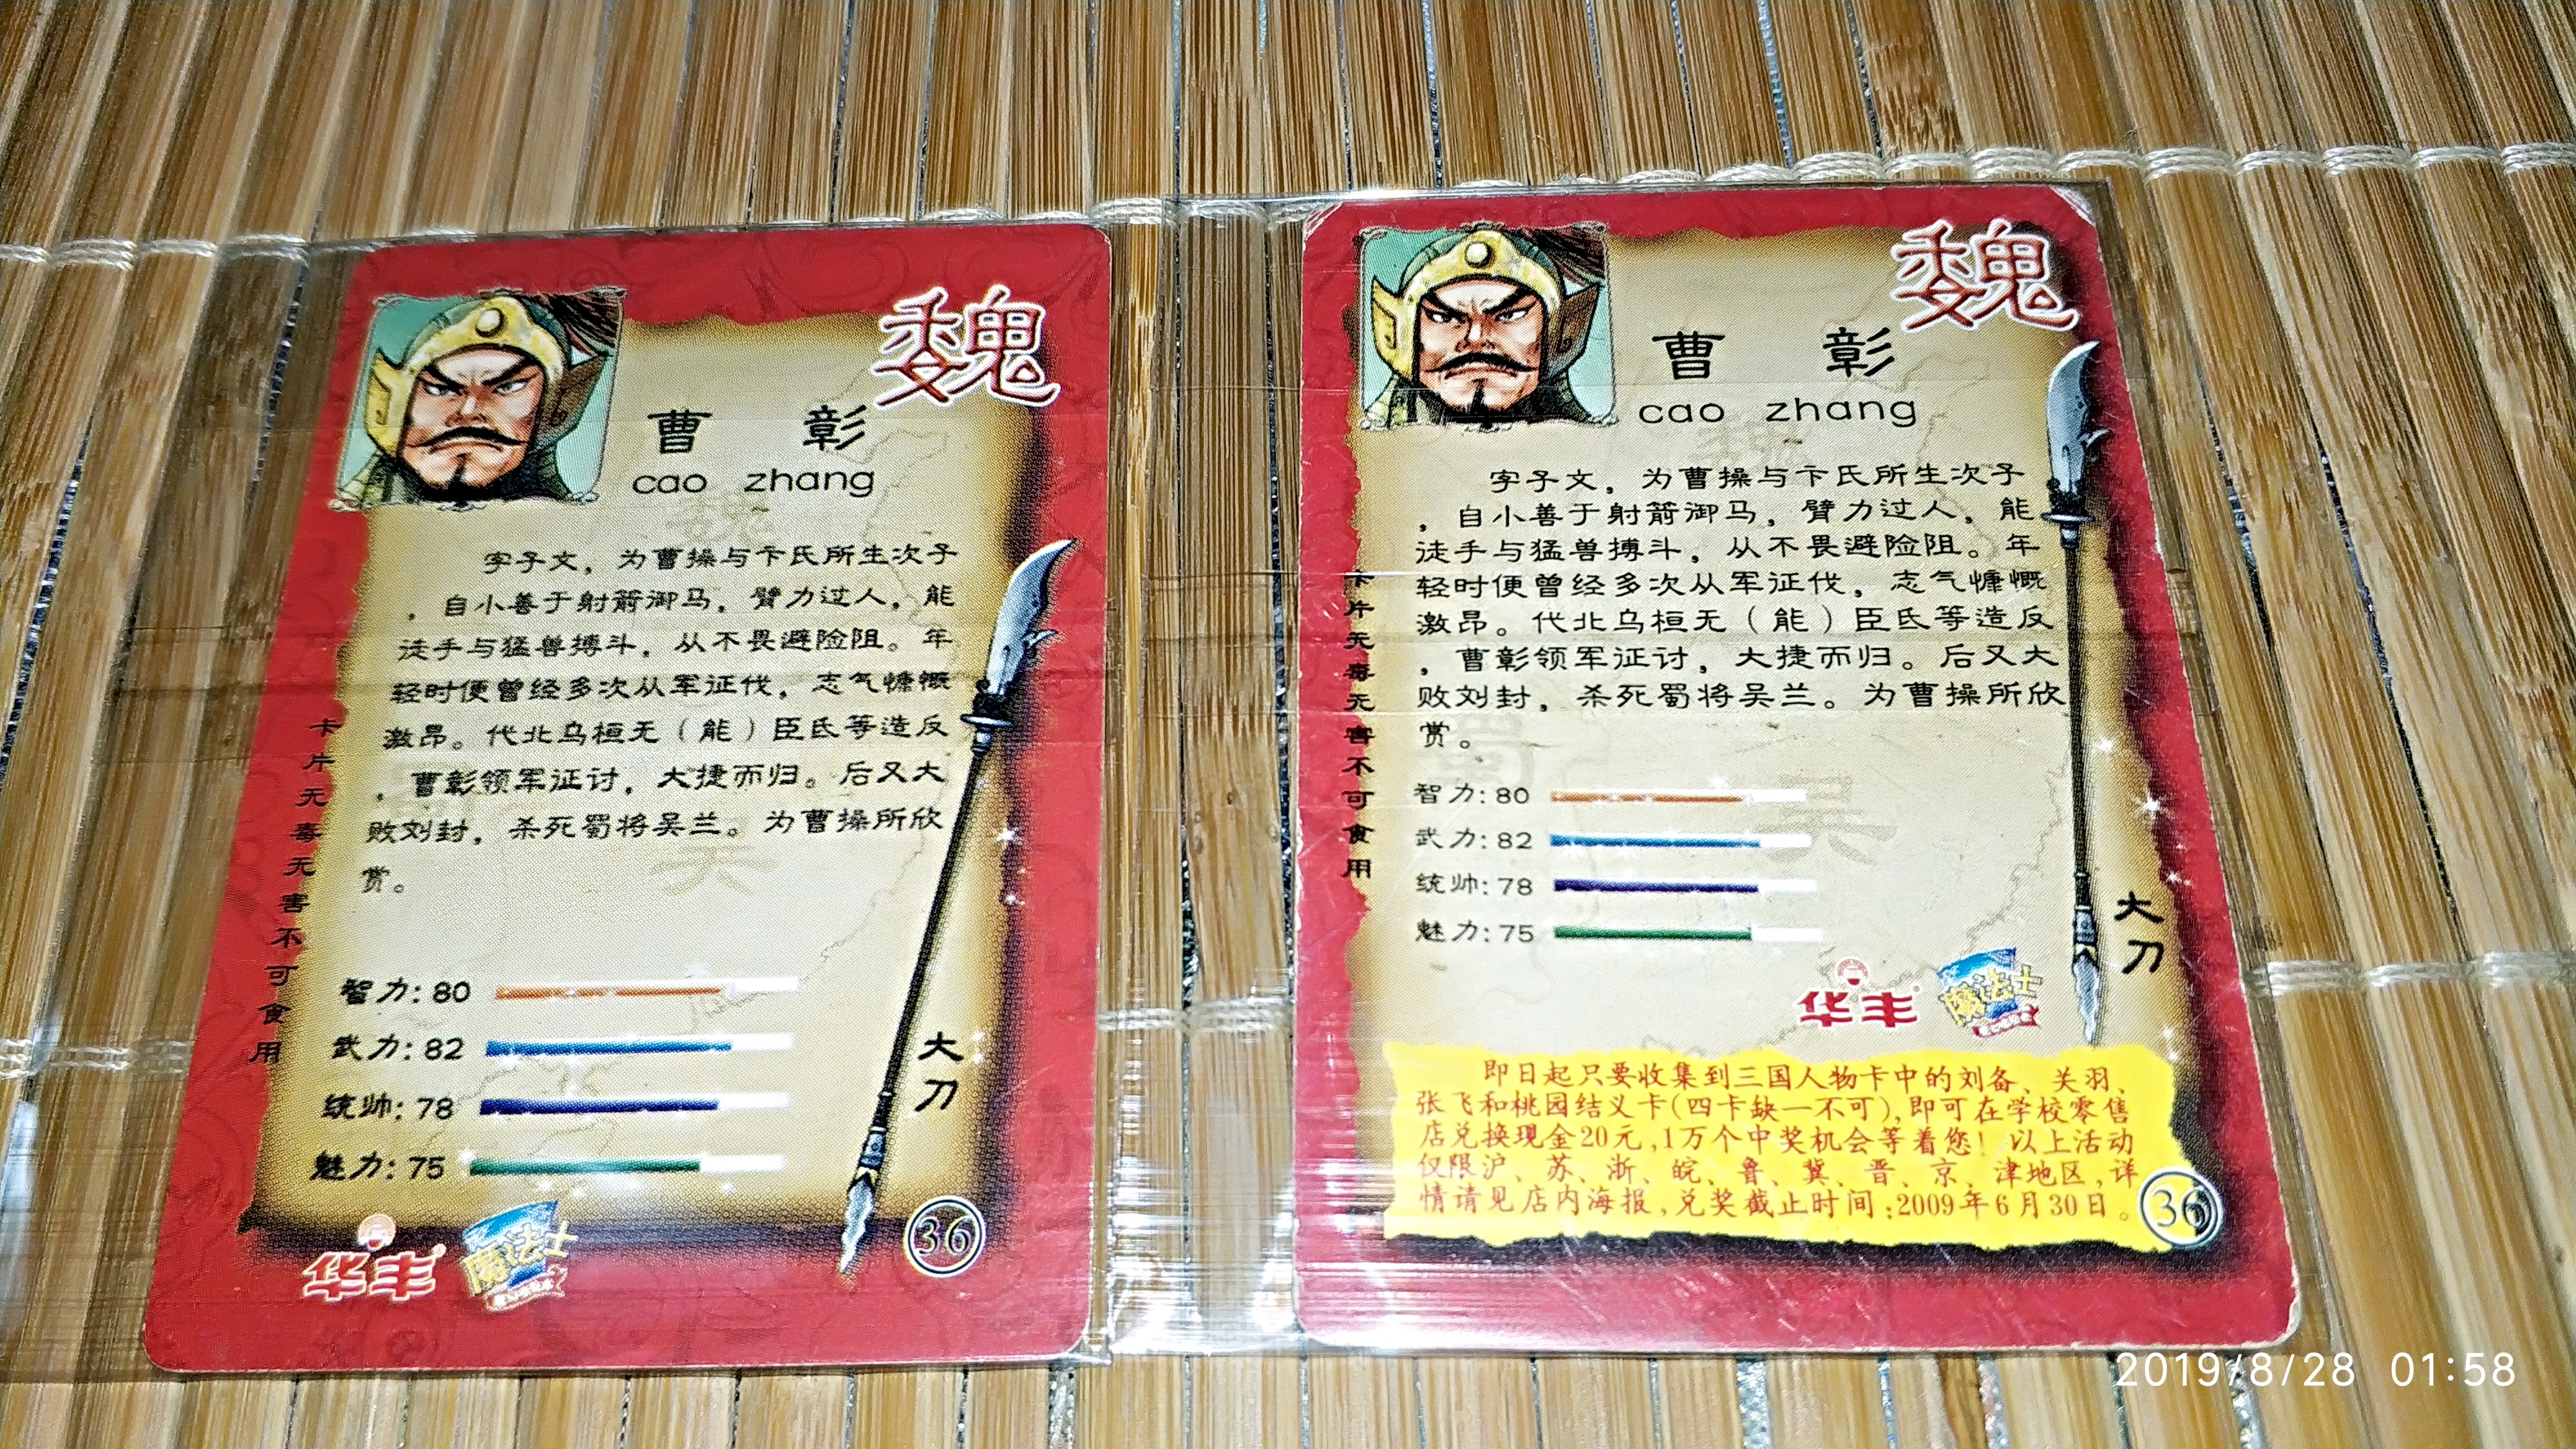 魏
曹 彰
cao zhang
字子文，为曹操与卞氏所生次子
，自小善于射箭御马，臂力过人，能
徒手与猛兽搏斗，从不畏避险阻。年
轻时便曾经多次从军征伐，志气慷慨
激昂。代北乌桓无（能）臣氐等造反
，曹彰领军征讨，大捷而归。后又大
败刘封，杀死蜀将吴兰。为曹操所欣
赏。
卡片无毒无害不可食用
智力:80
武力:82
统帅:78
魅力:75
大刀
华丰
魔法士
36
魏
曹 彰
cao zhang
字子文，为曹操与卞氏所生次子
，自小善于射箭御马，臂力过人，能
徒手与猛兽搏斗，从不畏避险阻。年
轻时便曾经多次从军征伐，志气慷慨
激昂。代北乌桓无（能）臣氐等造反
，曹彰领军征讨，大捷而归。后又大
败刘封，杀死蜀将吴兰。为曹操所欣
赏。
卡片无毒无害不可食用
智力:80
武力:82
统帅:78
魅力:75
大刀
华丰
魔法士
即日起只要收集到三国人物卡中的刘备、关羽、
张飞和桃园结义卡(四卡缺一不可),即可在学校零售
店兑换现金20元,1万个中奖机会等着您！以上活动
仅限沪、苏、浙、皖、鲁、冀、晋、京、津地区,详
情请见店内海报,兑奖截止时间:2009年6月30日。
36
2019/8/28 01:58